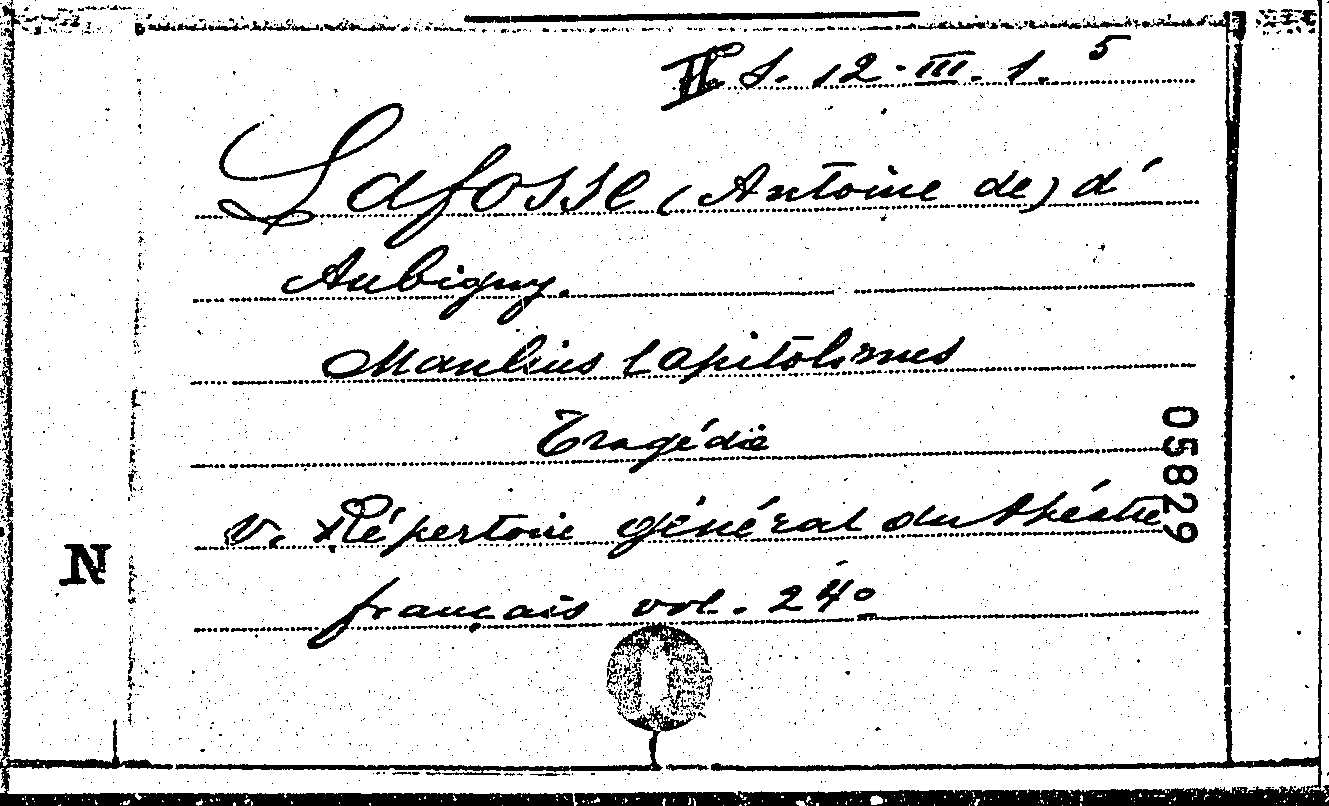 II. S. 12-III. 1. 5
Lafosse (Antoine de) d'
Aubigny.
Manlius Capitolinus
Tragédie
v. Répertoire général du théatre
français vol. 24º
05829
N